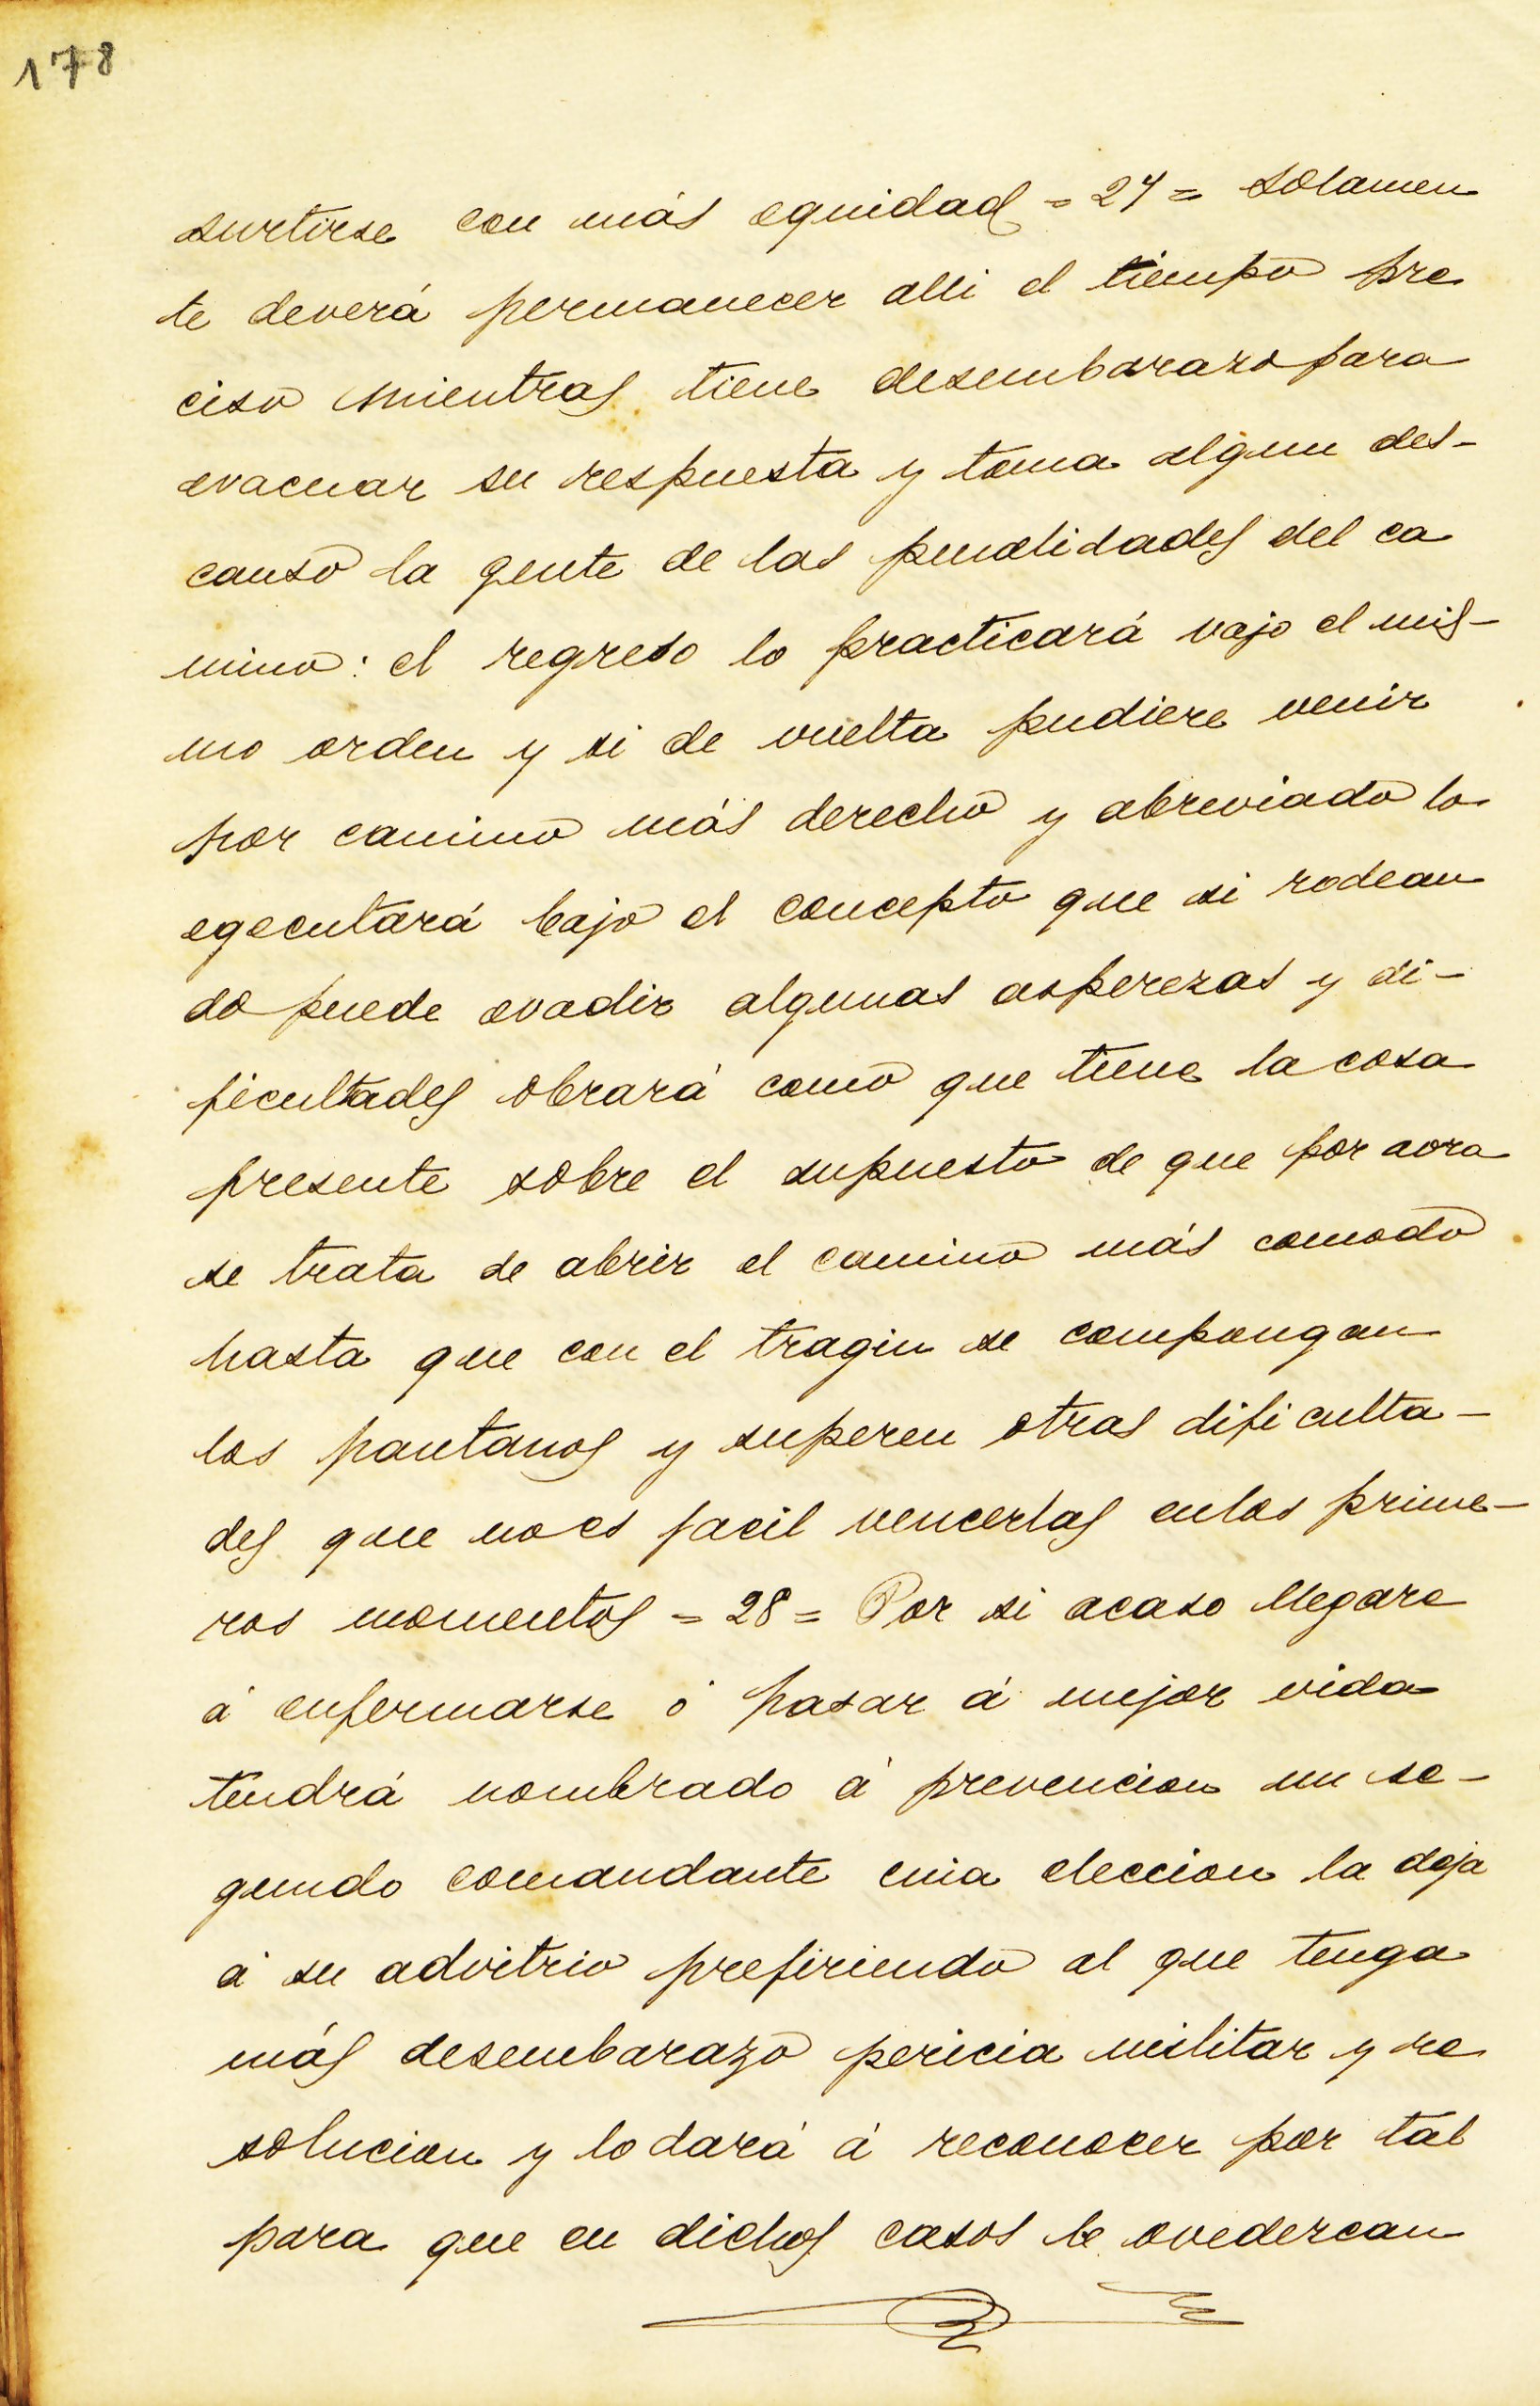 178
surtirse con más equidad = 27 = Solamen
te deverá permanecer alli el tiempo pre
ciso mientras tiene desembarazo para
evacuar su respuesta y toma algun des-
canso la gente de las penalidades del ca
mino: el regreso lo practicará vajo el mis-
mo orden y si de vuelta pudiere venir
por camino más derecho y abreviado lo
egecutará bajo el concepto que si rodean
do puede evadir algunas asperezas y di-
ficultades obrará como que tiene la cosa
presente sobre el supuesto de que por aora
se trata de abrir el camino más comodo
hasta que con el tragin se compongan
los pantanos y superen otras dificulta-
des que no es facil vencerlas en los prime-
ros momentos = 28 = Por si acaso llegare
á enfermarse ó pasar á mejor vida
tendrá nombrado á prevencion un se-
gundo comandante cuia eleccion la deja
á su advitrio prefiriendo al que tenga
más desembarazo pericia militar y re
solucion y lo dará á reconocer por tal
para que en dichos casos le ovedezcan